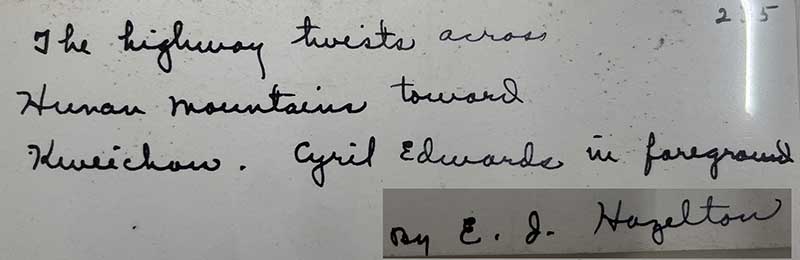 The highway twists across
Hunan mountains toward
Kweichow. Cyril Edwards in foreground
By E. J. Hazelton